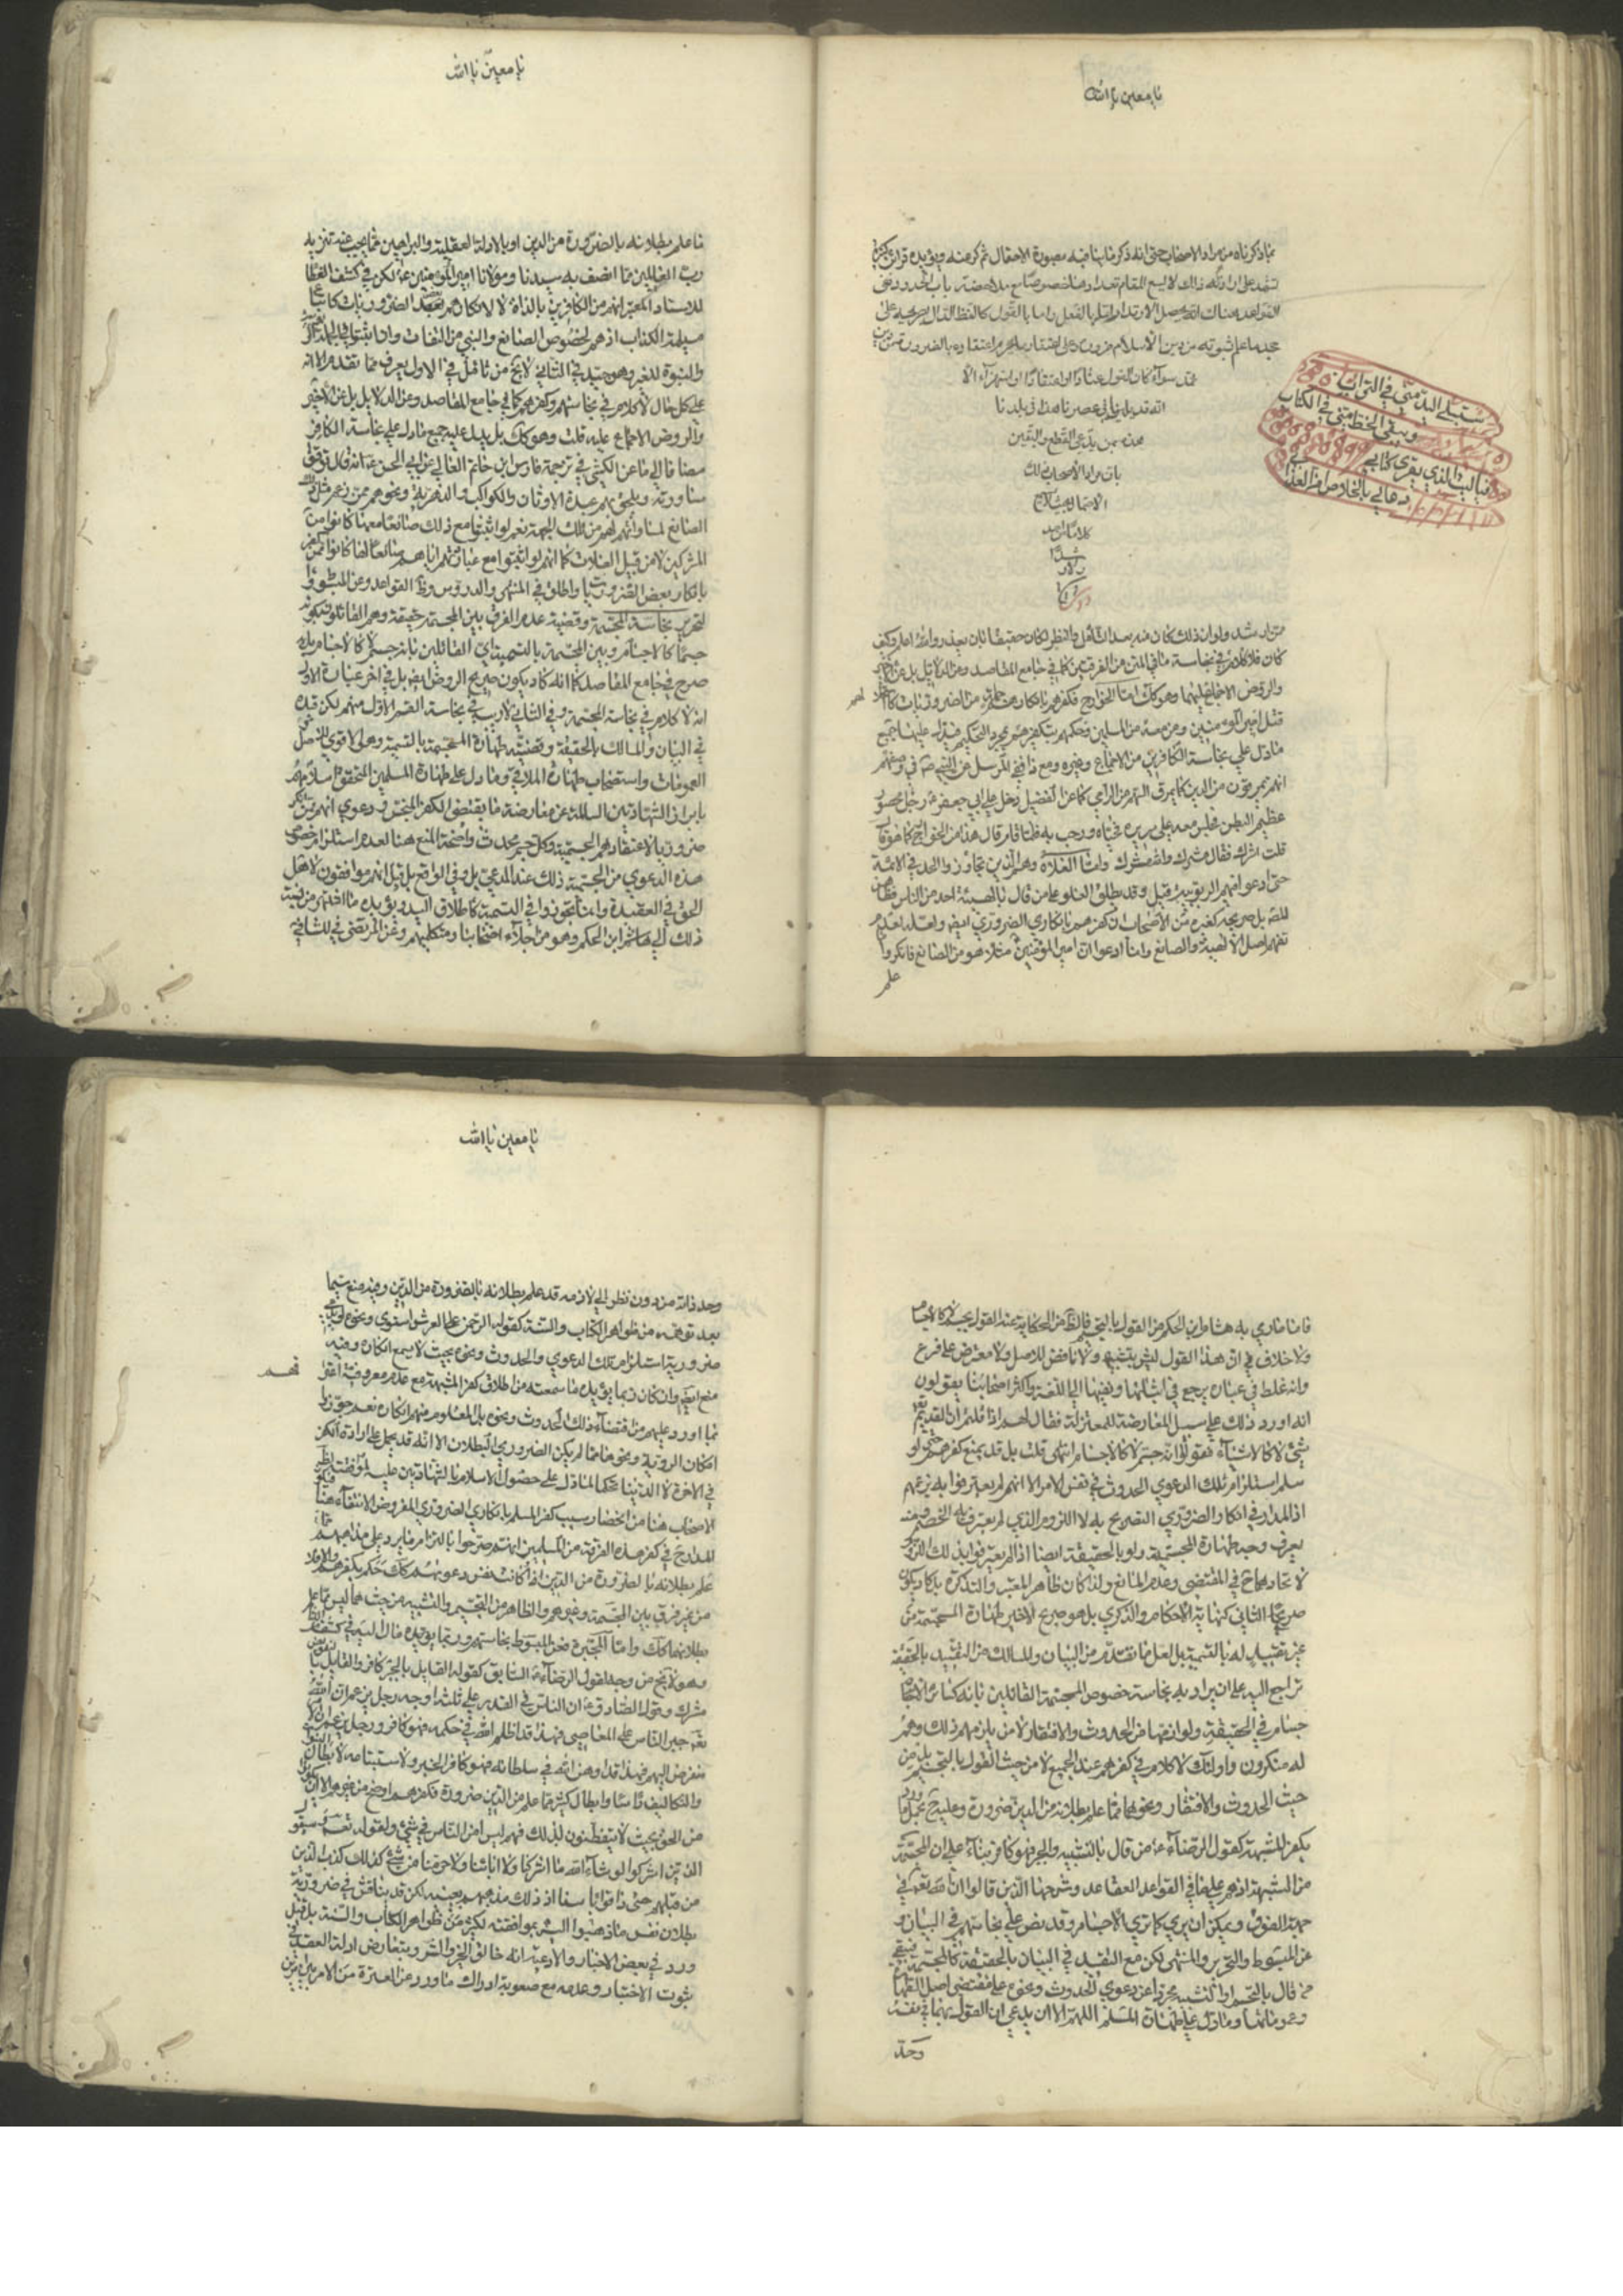 يا معين يا الله
بما ذكرناه من مراد الاصحاب حتى انه ذكر ما ينافيه بصورة الاحتمال ثم كر عنه ويؤيده قرائن كثيرة
تشهد على ارادته ذلك لا يسع المقام تعدادها خصوصا مع ملاحضة باب الحدود ففي
القواعد هناك انه يحصل الارتداد اما بالفعل واما بالقول كاللفظ الدال بصريحه على
جحد ما علم ثبوته من دين الاسلام ضرورة وعلى اعتقاد ما يحرم اعتقاده بالضرورة من دين
محمد سواء كان القول عنادا او اعتقادا او استهزاء الا
انه قد بلينا في عصرنا هذا في بلدنا
هذه بمن يدعى القطع واليقين
بان مراد الاصحاب ذلك
الاحتمال
كلام احد
ستبلى اليد منى في التراب
ويبقى الخط منى في الكتاب
فيا ليت الذي يقرى كتابي
دعا لي بالخلاص من العذاب
ممن له رشد ولو ان ذلك كان منه بعد التأمل والنظر لكان حقيقا بان يعذر والله اعلم وكيف
كان فلا كلام في نجاسة ما في المتن من الفرق بين كما في جامع المقاصد وعن الدلائل بل عن
والروض الاجماع عليهما وهو كك اما الخوارج فكفرهم بانكار جملة من الضروريات كاستحلالهم
قتل امير المؤمنين ومن معه من المسلمين وحكمهم بتكفيرهم بمجرد التحكيم فيدل عليه جميع
ما دل على نجاسة الكافرين من الاجماع وغيره ومع ذا فى المرسل عن النبي ص في وصفهم
انهم يمرقون من الدين كما يمرق السهم من الرامي كما عن الفضيل دخل على ابي جعفر ع رجل محصور
عظيم البطن فجلس معه على سريره فحياه ورحب به فلما قام قال هذا من الخوارج كما هو قال
قلت مشرك فقال مشرك والله مشرك واما الغلاة وهم الذين تجاوزوا الحد في الائمة
حتى ادعوا فيهم الربوبية قيل وقد يطلق الغلو على من قال بالهية احد من الناس فظاهر
المصه بل صريحه كغيره من الاصحاب ان كفرهم بانكاري الضروري ايضا ولعله لعدم
نفيهم اصل الالهية والصانع وانما ادعوا ان امير المؤمنين مثلا هو من الصانع فانكروا
علم
يا معين يا الله
ما علم بطلانه بالضرورة من الدين او بالادلة العقلية والبراهين مما يجب عنه تنزيه
رب العالمين مما اتصف به سيدنا ومولانا امير المؤمنين ع لكن في كشف الغطا
للاستاد المعتبر انهم من الكافرين بالذات لا لانكارهم بعض الضروريات كاتباع
مسيلمة الكذاب اذ هم لخصوص الصانع والنبي من النفاة وان اثبتوا
والنبوة للغير وهو جيد في الثاني لا يخ من تأمل في الاول يعرف مما تقدم الا انه
على كل حال لا كلام في نجاستهم وكفرهم كما في جامع المقاصد وعن الدلايل بل عن الاخير
والروض الاجماع عليه قلت وهو كك بل يدل عليه جميع ما دل على نجاسة الكافر
مضافا الى ما عن الكشي في ترجمة فارس ابن حاتم الغالي عن ابي الحسن ع انه قال توقوا
مساورته ويلحق بهم عبدة الاوثان والكواكب والدهرية ونحوهم ممن زعم مثل ذلك
الصانع لمساواتهم لهم من تلك الجهة نعم لو اثبتوا مع ذلك صانعا معها كانوا من
المشركين لا من قبيل الغلاة كما انهم لو اثبتوا مع عبادتهم اياهم صانعا الها كانوا ممن كفر
بانكار بعض الضروريات واطلق في المنتهى والدروس وظ القواعد وعن المبسوط و
التحرير نجاسة المجسمة وقضيته عدم الفرق بين المجسمة حقيقة وهم القائلون بكونه
جسما كالاجسام وبين المجسمة بالتسمية اي القائلين بانه جسم لا كالاجسام بل به
صرح في جامع المقاصد كما انه كاد يكون صريح الروض ايضا بل في اخر عبارة الاول
انه لا كلام في نجاسة المجسمة وفي الثاني لا ريب في نجاسة القسم الاول منهم لكن قيده
في البيان والمسالك بالحقيقة وقضيته طهارة المجسمة بالتسمية وهو الاقوى للاصل
العمومات واستصحاب طهارة الملاقي وما دل على طهارة المسلمين المتحقق اسلامهم
بابراز الشهادتين السالمة عن معارضة ما يقتضى الكفر المنجس ودعوى انهم ممن انكر
ضروريا لاعتقادهم الجسمية وكل جسم محدث واضحة المنع هنا لعدم استلزام خصوص
هذه الدعوى من الجسمية ذلك عند المدعى بل وفي الواقع بل قيل انهم موافقون لاهل
الحق في العقيدة وانما تجوزوا في التسمية كاطلاق اليد ويؤيده ما اشتهر من نسبة
ذلك الى هشام ابن الحكم وهو من اجلاء اصحابنا ومتكلميهم وعن المرتضى في الشافي
فاما ما رمي به هشام ابن الحكم من القول بالتجسيم فالظ من الحكاية عنه القول بجسم لا كالاجسام
ولا خلاف في ان هذا القول ليس بتشبيه ولا ناقض للاصل ولا معترض على فرع
وانه غلط في عبارة يرجع في اثباتها ونفيها الى اللغة واكثر اصحابنا يقولون
انه اورد ذلك على سبيل المعارضة للمعتزلة فقال لهم اذا قلتم ان القديم
شئ لا كالاشياء فقولوا انه جسم لا كالاجسام انتهى قلت بل قد يمنع كفرهم حتى لو
سلم استلزام تلك الدعوى الحدوث في نفس الامر الا انهم لم يعترفوا به بزعمهم
اذ المدار في انكار الضروري التصريح به لا اللزوم الذي لم يعترف به الخصم ومنه
يعرف وجه طهارة المجسمة ولو بالحقيقة ايضا اذا لم يعترفوا بذلك اللزوم
لاتحادهما ح في المقتضى وعدم المانع ولذا كان ظاهر المعتبر والتذكرة بل كاد يكون
صريح الثاني كنهاية الاحكام والذكرى بل هو صريح الاخير طهارة المجسمة من
غير تقييد له بالتسمية بل لعل ما تقدم من البيان والمسالك من التقييد بالحقيقة
راجع اليه على ان يراد به نجاسة خصوص المجسمة القائلين بانه كسائر الاجسام
في الحقيقة ولوازمها من الحدوث والافتقار لا من يلزمهم ذلك وهم
له منكرون واولئك لا كلام في كفرهم عند الجميع لا من حيث القول بالتجسيم بل من
حيث الحدوث والافتقار ونحوهما مما علم بطلانه من الدين ضرورة وعليه ح يحمل ما ورد
بكفر المشبهة كقول الرضاء ع من قال بالتشبيه والجبر فهو كافر بناء على ان المجسمة
من المشبهة اذ هم على ما في القواعد العقائد وشرحها الذين قالوا ان الله تعه في
جهة الفوق ويمكن ان يرى كما ترى الاجسام وقد نص على نجاستهم في البيان و
عن المبسوط والتحرير والمنتهى لكن مع التقييد في البيان بالحقيقة كالمجسمة فيبقى
من قال بالتجسم او التشبيه مجردا عن دعوى الحدوث ونحوه على مقتضى اصل الطهارة
وعموماتها وما دل على طهارة المسلم اللهم الا ان يدعى ان القول بهما في نفسه
وحد
يا معين يا الله
وحد ذاته من دون نظر الى لازمه قد علم بطلانه بالضرورة من الدين وفيه منع سيما
بعد توهمه من ظواهر الكتاب والسنة كقوله الرحمن على العرش استوى ونحوه او يدعى
ضرورية استلزام تلك الدعوى والحدوث ونحوه بحيث لا يسمع انكاره وفيه
منع ايضا وان كان ربما يؤيده ما سمعته من اطلاق كفر المشبهة مع عدم معروفية اعتراف
فهم
بما اورد عليهم من اقتضاء ذلك الحدوث ونحوه بل المعلوم منهم انكاره نعم جوزوا
امكان الرؤية ونحوها مما لم يكن الضروري البطلان الا انه قد يحمل على ارادة الكفر
في الاخرة لا الدنيا تحكيما لما دل على حصول الاسلام بالشهادتين عليه
الاصحاب هنا من انحصار سبب كفر المسلم بانكاري الضروري المفروض الانتفاء هنا
المدار ح في كفر هذه الفرقة من المسلمين انهم صرحوا بالتزام ما يرد على مذاهبهم مما
علم بطلانه بالضرورة من الدين اذا كانت نفس دعويهم كك حكم بكفرهم والا فلا
من غير فرق بين المجسمة وغيرهم والظاهر من التجسيم والتشبيه من حيث هما ليس مما علم
بطلانهما كك واما المجبرة فعن المبسوط نجاستهم وربما يؤيده مال اليه في كشف اللثام
وهو لا يخ من وجه لقول الرضاء ع السابق كقوله القايل بالجبر كافر والقايل بالتفويض
مشرك وقول الصادق ع ان الناس في القدر على ثلثة اوجه رجل يزعم ان الله
تعه جبر الناس على المعاصي فهذا قد اظلم الله في حكمه فهو كافر ورجل يزعم ان الامر
مفوض اليهم فهذا قد اوهن الله في سلطانه فهو كافر الخبر ولاستتباعه لابطال النبوات
والتكاليف راسا وابطال كثير مما علم من الدين ضرورة فكفرهم اوضح من غيرهم الا ان يكون
من الحق بحيث لا يتفطنون لذلك فهم ليس من الناس في شئ ولقوله تعه سيقول
الذين اشركوا لو شاء الله ما اشركنا ولا اباؤنا ولا حرمنا من شئ كذلك كذب الذين
من قبلهم حتى ذاقوا باسنا اذ ذلك مذهبهم بعينه لكن قد يناقش في ضرورية
بطلان نفس ما ذهبوا اليه بموافقته لكثير من ظواهر الكتاب والسنة بل قيل
ورد في بعض الاخبار والادعية انه خالق الخير والشر وبتعارض ادلة العقل في
ثبوت الاختيار وعدمه مع صعوبة ادراك ما ورد عن العترة من الامر بين امرين